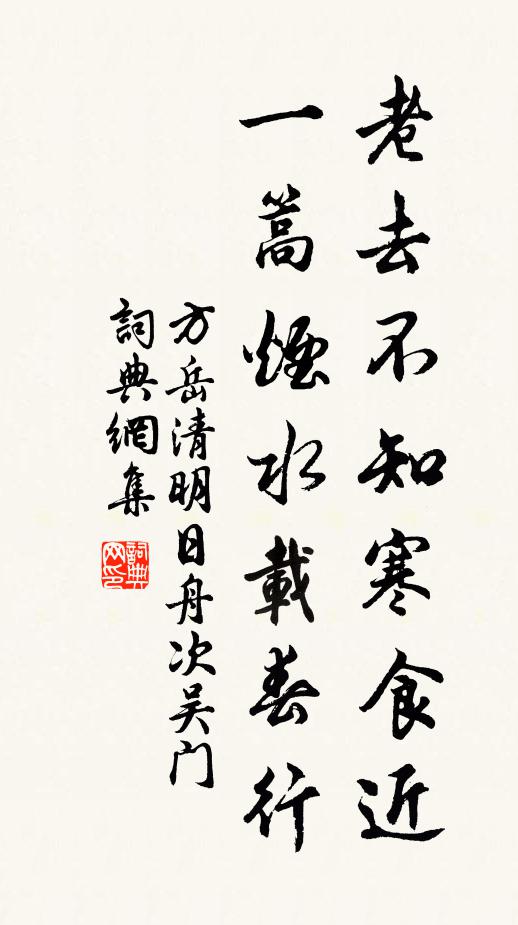 老去不知寒食近
一篙煙水載春行
方岳清明日舟次吴门
詞典網集
詞典网印